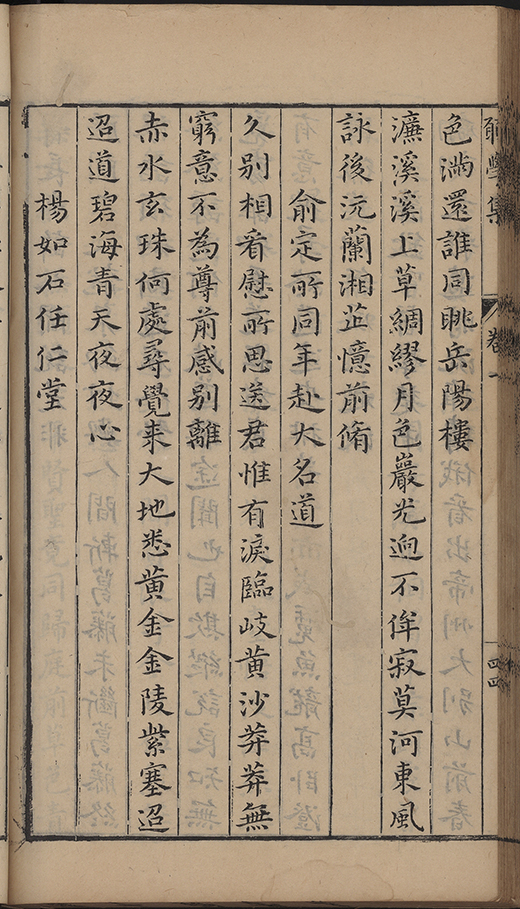 卷一
四四
色滿還誰同眺岳陽樓
濂溪溪上草綢繆月色巖光迥不侔寂莫河東風
詠後沅蘭湘芷憶前脩
俞定所同年赴大名道
久别相看慰所思送君惟有淚臨岐黄沙莽莽無
窮意不為尊前感别離
赤水玄珠何處尋覺来大地悉黄金金陵紫塞迢
迢道碧海青天夜夜心
楊如石任仁堂